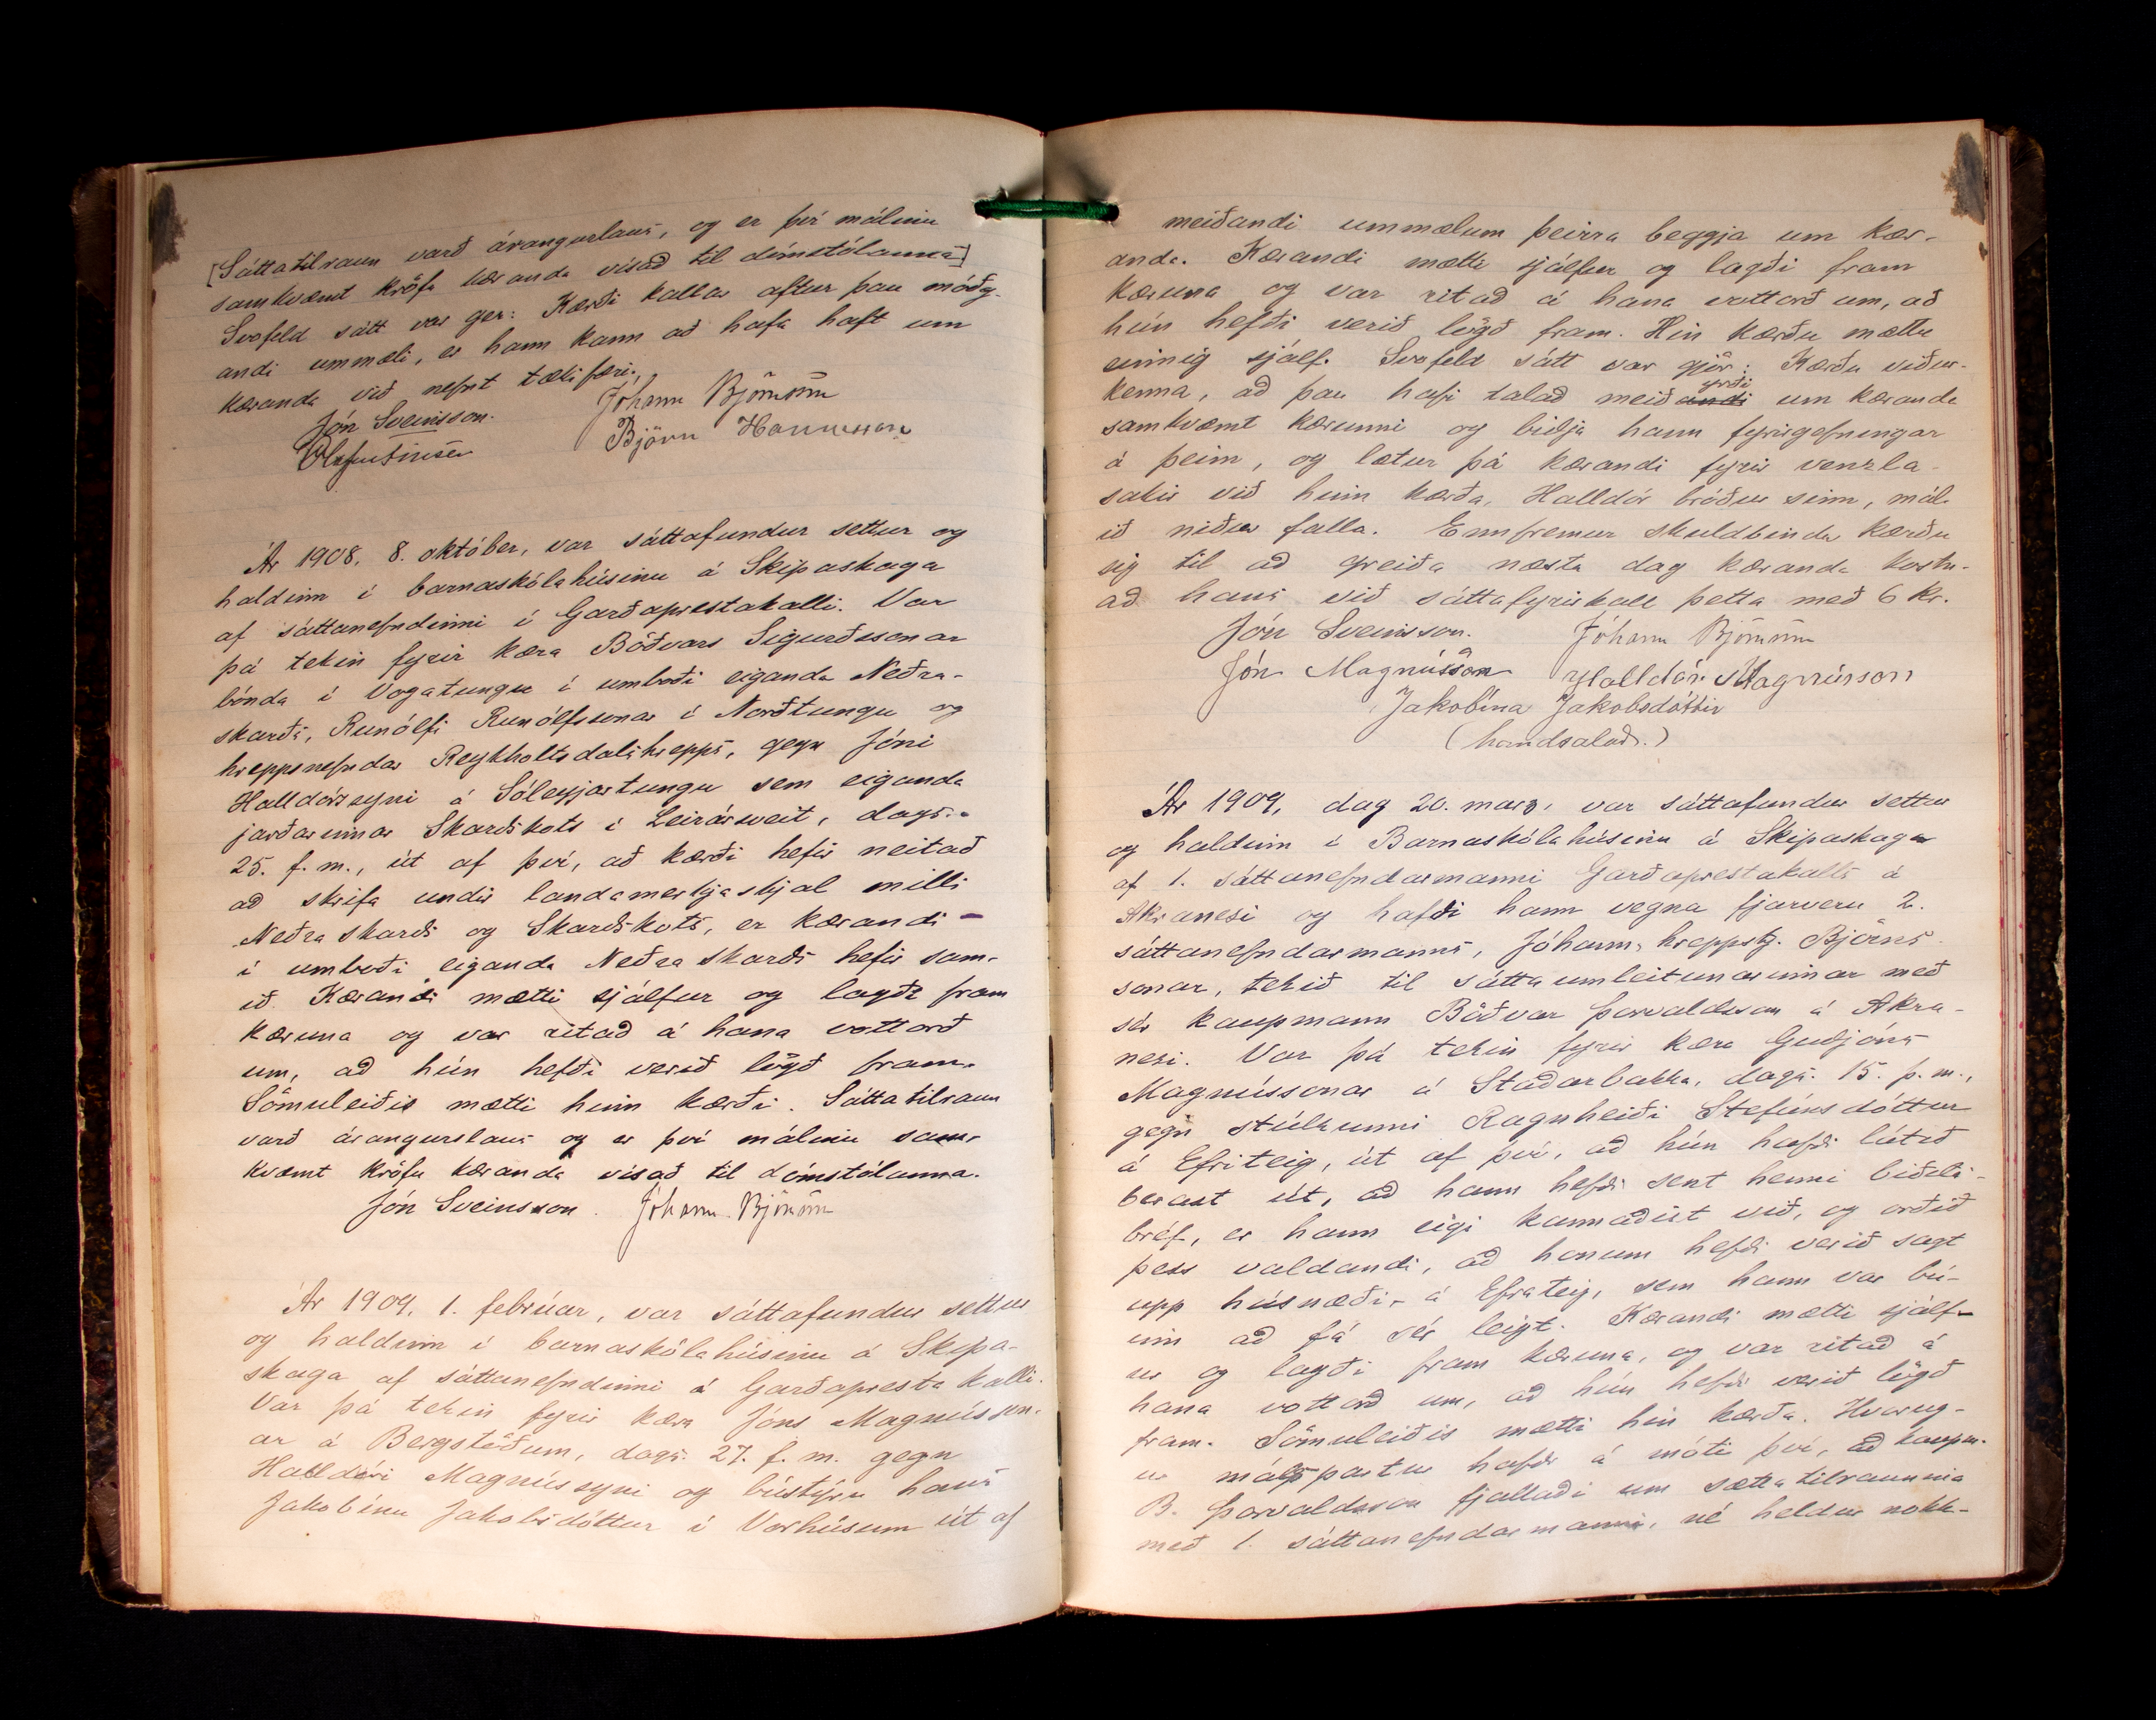 [Sáttatilraun varð árangurslaus, og er því málinu
samkvæmt kröfu kæranda vísað til dómstólanna]
Svofeld sátt var ger: Kærði kallar aftur þau móðg-
andi ummæli, er hann kann að hafa haft um
kæranda við nefnt tækifæri.
Jón Sveinsson. Jóhann Björnsson
Ólafur Finsen Björn Hannesson
Ár 1908, 8. október, var sáttafundur settur og
haldinn í barnaskólahúsinu á Skipaskaga
af sáttanefndinni í Garðaprestakalli. Var
þá tekin fyrir kæra Böðvars Sigurðssonar
bónda í Vogatungu í umboði eiganda Neðra-
skarðs, Runólfi Runólfssonar í Norðtungu og
hreppsnefndar Reykholtsdalshrepps, gegn Jóni
Halldórssyni á Sóleyjartungu sem eiganda
jarðarinnar Skarðskots í Leirársveit, dags.
25. f. m., út af því, að kærði hefir neitað
að skrifa undir landamerkjaskjal milli
Neðraskarðs og Skarðskots, er kærandi -
í umboði eiganda Neðraskarðs hefir sam-
ið. Kærandi mætti sjálfur og lagði fram
kæruna og var ritað á hana vottorð
um, að hún hefði verið lögð fram.
Sömuleiðis mætti hinn kærði. Sáttatilraun
varð árangurslaus og er því málinu sam-
kvæmt kröfu kæranda vísað til dómstólanna.
Jón Sveinsson. Jóhann Björnsson
Ár 1909, 1. febrúar, var sáttafundur settur
og haldinn í barnaskólahúsinu á Skipa-
skaga af sáttanefndinni á Garðaprestakalli.
Var þá tekin fyrir kæra Jóns Magnússon-
ar á Bergstöðum, dags. 27. f. m. gegn
Halldóri Magnússyni og bústýru hans
Jakobínu Jakobsdóttur í Vorhúsum út af
meiðandi ummælum þeirra beggja um kær-
anda. Kærandi mætti sjálfur og lagði fram
kæruna og var ritað á hana vottorð um, að
hún hefði verið lögð fram. Hin kærðu mættu
einnig sjálf. Svofeld sátt var gjör: Kærðu viður-
kenna, að þau hafi talað meiðandi yrði um kæranda
samkvæmt kærunni og biðja hann fyrirgefningar
á þeim, og lætur þá kærandi fyrir venzla-
sakir við hinn kærða, Halldór bróður sinn, mál-
ið niður falla. Ennfremur skuldbinda kærðu
sig til að greiða næsta dag kæranda kostn-
að hans við sáttafyrirkall þetta með 6 kr.
Jón Sveinsson. Jóhann Björnsson
Jón Magnússon Halldór Magnússon
Jakobína Jakobsdóttir
(handsalað.)
Ár 1909, dag 20. marz, var sáttafundur settur
og haldinn í Barnaskólahúsinu á Skipaskaga
af 1. sáttanefndarmanni Garðaprestakalls á
Akranesi og hafði hann vegna fjarveru 2.
sáttanefndarmanns, Jóhanns hreppstj. Björns-
sonar, tekið til sáttaumleitunarinnar með
sér kaupmann Böðvar Þorvaldsson á Akra-
nesi. Var þá tekin fyrir kæra Guðjóns
Magnússonar á Staðarbakka, dags. 15. þ. m.,
gegn stúlkunni Ragnheiði Stefánsdóttur
á Efriteig, út af því, að hún hafði látið
berast út, að hann hefði sent henni biðils-
bréf, er hann eigi kannaðist við, og orðið
þess valdandi, að honum hefði verið sagt
upp húsnæði á Efrateig, sem hann var bú-
inn að fá sér leigt. Kærandi mætti sjálf-
ur og lagði fram kæruna, og var ritað á
hana vottorð um, að hún hefði verið lögð
fram. Sömuleiðis mætti hin kærða. Hvorug-
ur málspartur hafði á móti því, að kaupm.
B. Þorvaldsson fjallaði um sáttatilraunina
með 1. sáttanefndarmanni, né heldur nokk-